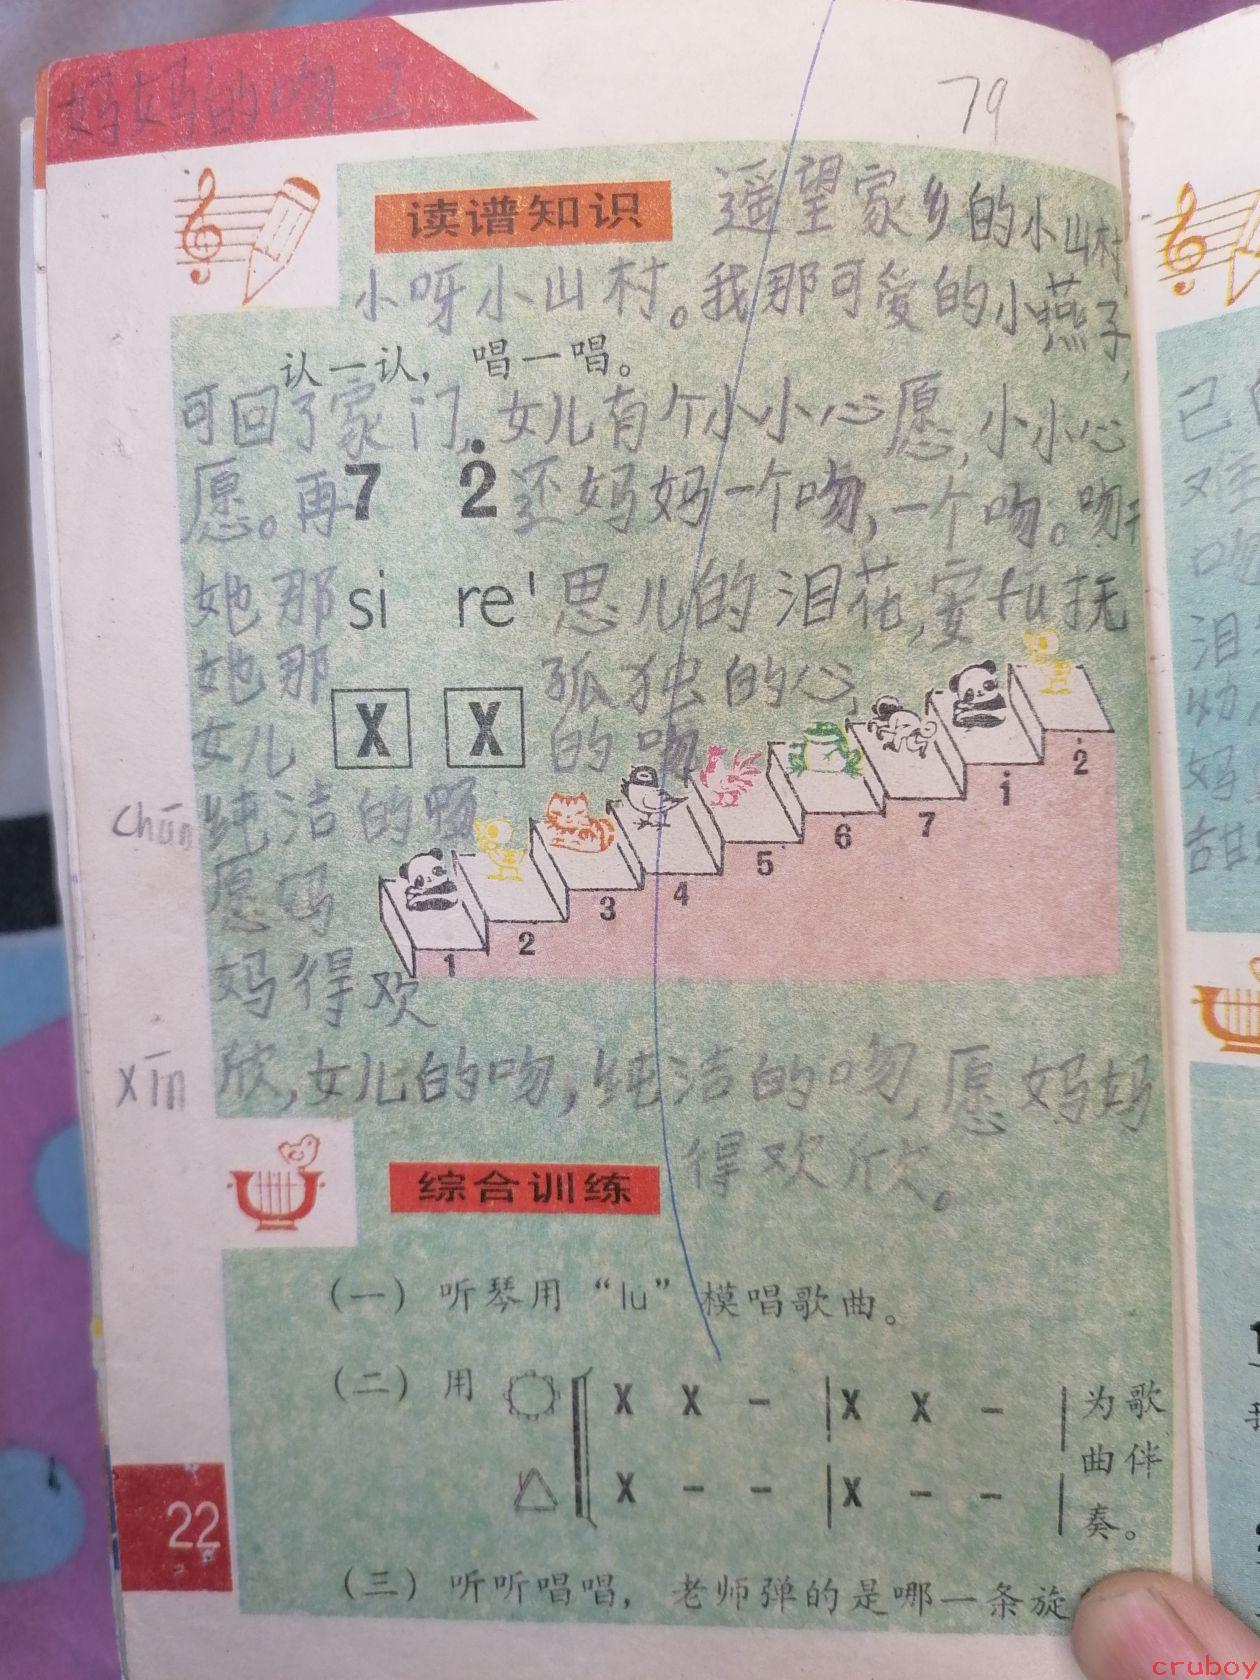 妈妈的吻 2
79
读谱知识
遥望家乡的小山村,
小呀小山村。我那可爱的小燕子,
认一认，唱一唱。
可回了家门,女儿有个小小心愿,小小心
愿。再还妈妈一个吻,一个吻。吻干
7 2
她那思儿的泪花,安fu抚
si re'
她那孤独的心,
X X
女儿的吻
chún 纯洁的吻
愿妈
妈得欢
1 2 3 4 5 6 7 1 2
xīn 欣,女儿的吻,纯洁的吻,愿妈妈
得欢欣。
综合训练
(一) 听琴用“lu”模唱歌曲。
(二) 用 X X － | X X － | 为歌
曲伴
X － － | X － － | 奏。
(三) 听听唱唱，老师弹的是哪一条旋
22
己
难
吻
泪
幼
妈
甜
cruboy